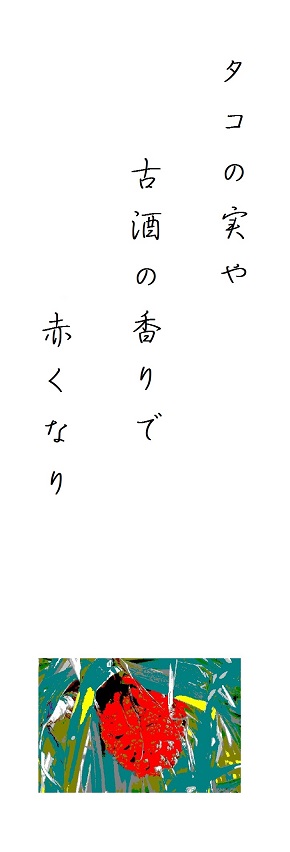 タコの実や
古酒の香りで
赤くなり